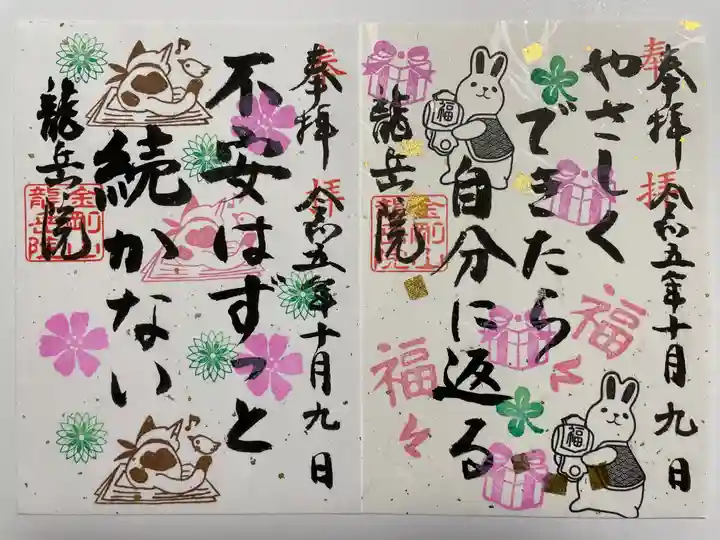 奉拝
令和五年十月九日
やさしく
できたら
自分に返る
龍岳院
奉
拝
福々
福々
福
福
金剛山
龍岳院
奉拝
令和五年十月九日
不安はずっと
続かない
龍岳院
奉
拝
金剛山
龍岳院